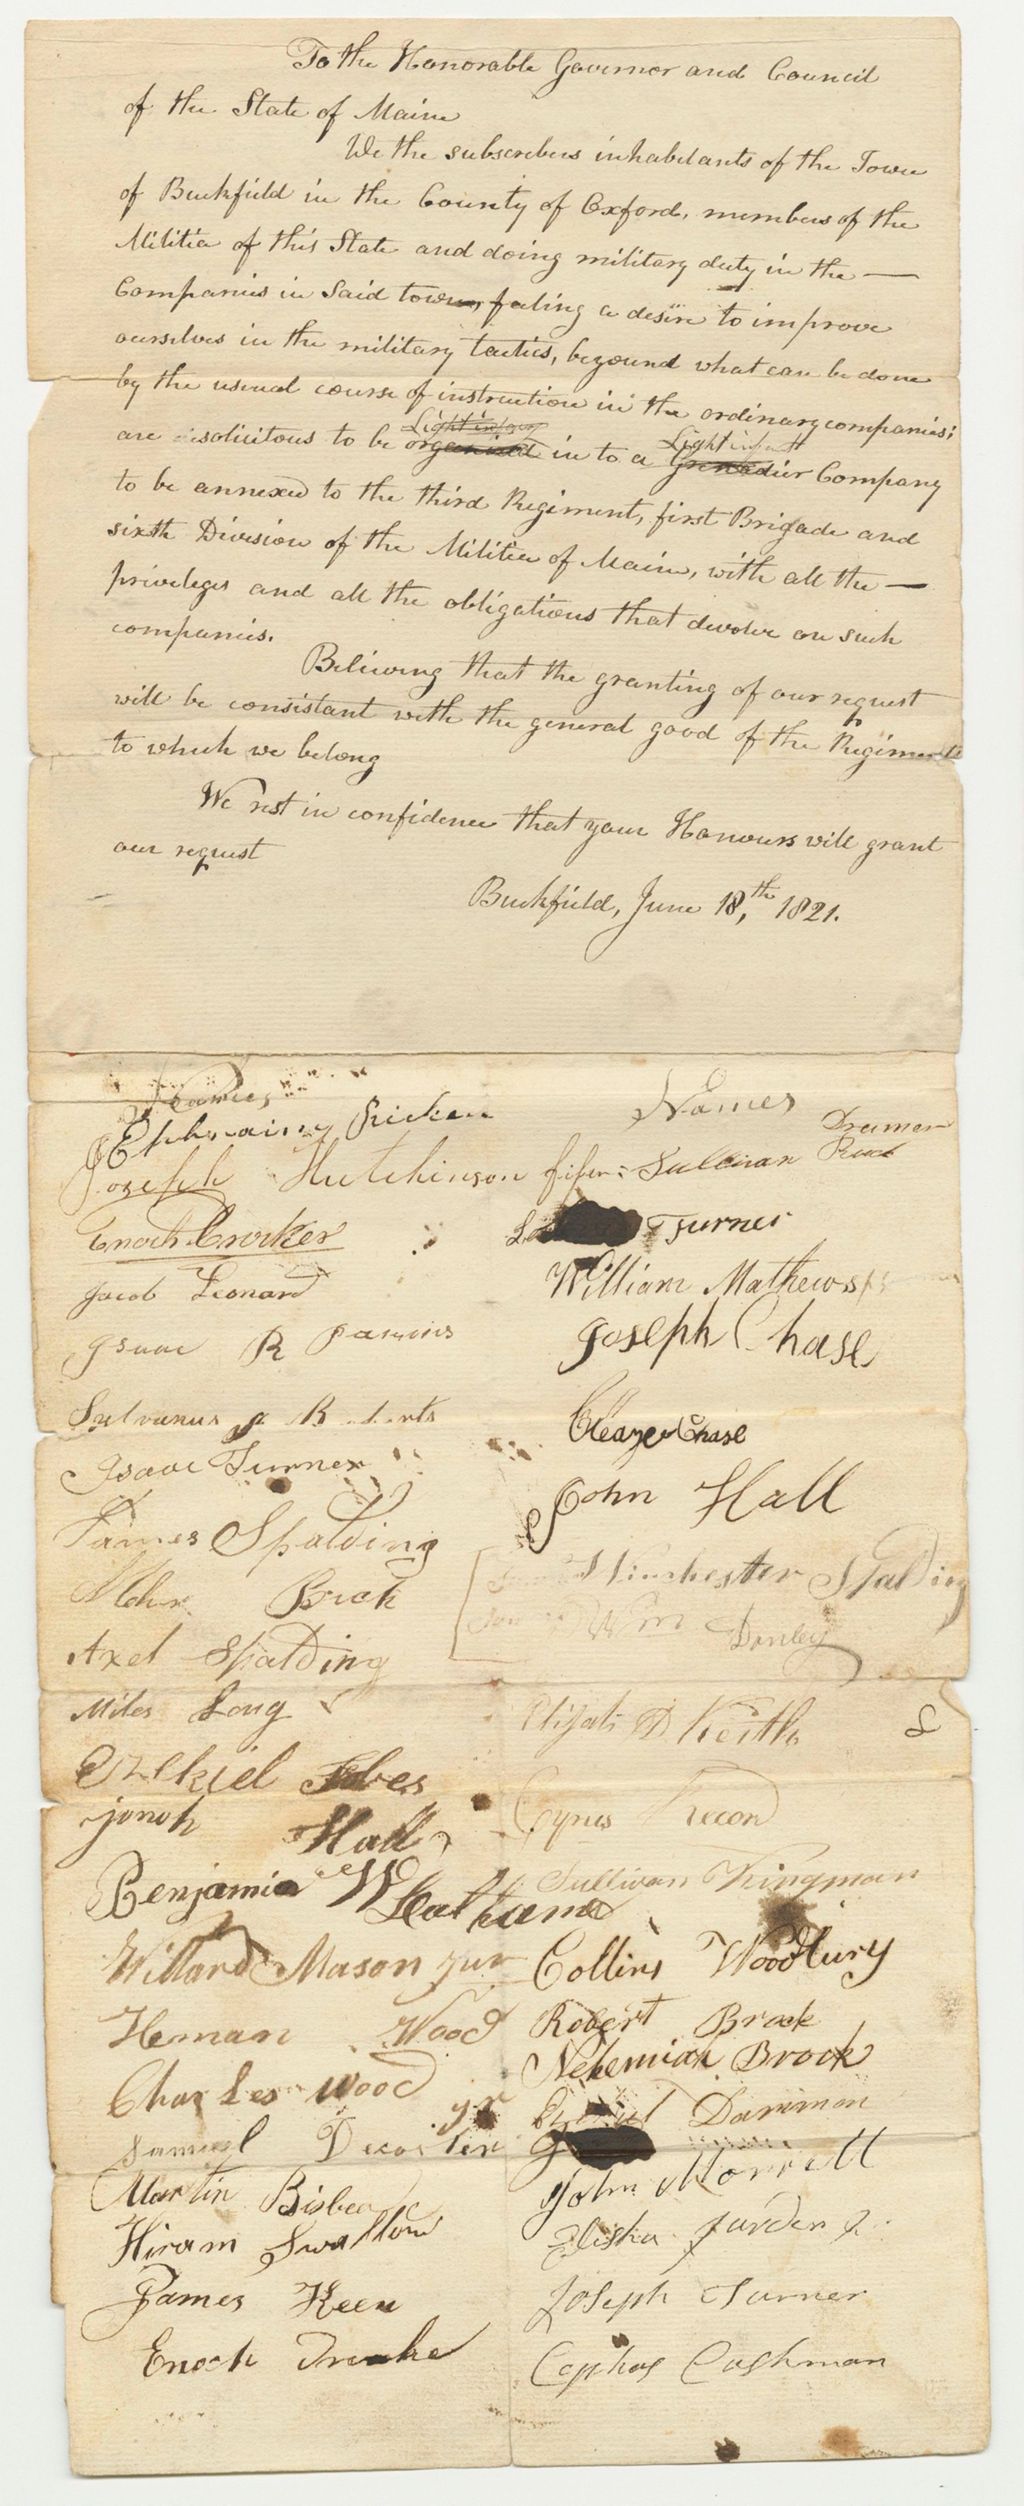 To the Honorable Governor and Council
of the State of Maine
We the subscribers inhabitants of the Town
of Buckfield in the County of Oxford, members of the
Militia of this State and doing military duty in the —
Companies in Said town, feeling a desire to improve
ourselves in the military tactics, beyound what can be done
by the usual course of instruction in the ordinary companies;
Light infany Light infantt
are solicitous to be organized in to a Grenadier Company
to be annexed to the third Regiment, first Brigade and
sixth Division of the Militia of Maine, with all the —
privileges and all the obligations that devolve on such
companies.
Believing that the granting of our request
will be consistant with the general good of the Regiment
to which we belong
We rest in confidence that your Honours will grant
our request
Buckfield, June 18,th 1821.
Names
Names
Ephraim Ricker
Joseph Hutchinson
Enoch Crocker
Jacob Leonard
Isaac R Parsons
Sulvanus Roberts
Isaac Turner
James Spalding
Brock
Axel Spalding
Miles Long
Ezekiel Fobes
jonah Hall
Benjamin W Latham
Willard Mason jur
Heman Wood
Charles Wood
Samuel Decoster jr
Martin Bisbe
Hiram Swallow
James Keen
Enoch Drake
Drumer
fifer: Sullivan
Turner
William Mathews
Joseph Chase
Eleazer Chase
John Hall
Winchester Spalding
Wm Donley
Elijah D Keith
Cyrus Record
Sullivan Kingman
Collins Woodbury
Robert Brock
Nehemiah Brock
Dammon
John Morrill
Elisha Jurden
Joseph Turner
Cephas Cushman